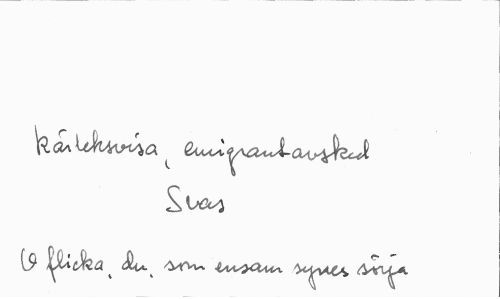 Kärleksvisa, emigrantavsked
Svas
O flicka, du, som ensam synes sörja